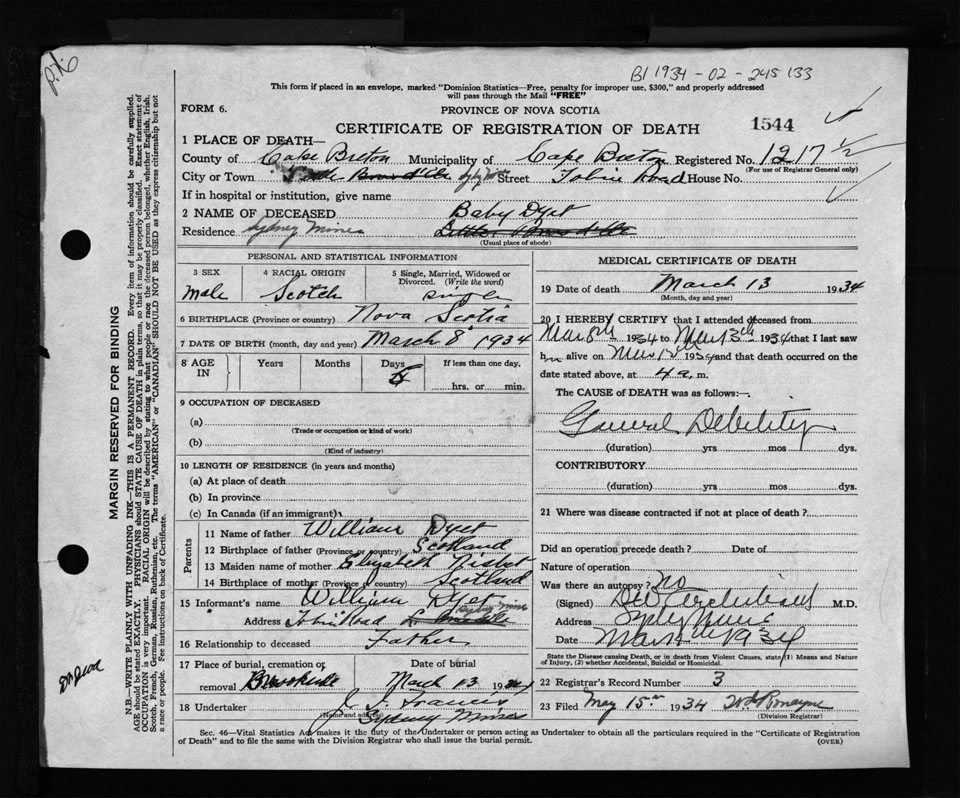 p.76
B1 1934-02-245133
This form if placed in an envelope, marked "Dominion Statistics—Free, penalty for improper use, $300," and properly addressed
will pass through the Mail "FREE"
FORM 6. PROVINCE OF NOVA SCOTIA
CERTIFICATE OF REGISTRATION OF DEATH 1544
1 PLACE OF DEATH—
County of Cape Breton Municipality of Cape Breton Registered No. 1217 1/2
(For use of Registrar General only)
City or Town Little Bras d'Or Street Tobin Road House No.
If in hospital or institution, give name
2 NAME OF DECEASED Baby Dyet
Residence Sydney Mines Little Bras d'Or
(Usual place of abode)
PERSONAL AND STATISTICAL INFORMATION
3 SEX 4 RACIAL ORIGIN 5 Single, Married, Widowed or Divorced. (Write the word)
Male Scotch Single
6 BIRTHPLACE (Province or country) Nova Scotia
7 DATE OF BIRTH (month, day and year) March 8 1934
8 AGE IN Years Months Days 5 If less than one day,
hrs. or min.
9 OCCUPATION OF DECEASED
(a)
(Trade or occupation or kind of work)
(b)
(Kind of industry)
10 LENGTH OF RESIDENCE (in years and months)
(a) At place of death
(b) In province
(c) In Canada (if an immigrant)
Parents
11 Name of father William Dyet
12 Birthplace of father (Province or country) Scotland
13 Maiden name of mother Elizabeth Nisbet
14 Birthplace of mother (Province or country) Scotland
15 Informant's name William Dyet
Address Tobin Road Sydney Mines
16 Relationship to deceased Father
17 Place of burial, cremation or removal Brookside Date of burial March 13 1934
18 Undertaker J. J. Francis
(Name and address) Sydney Mines
MEDICAL CERTIFICATE OF DEATH
19 Date of death March 13 1934
(Month, day and year)
20 I HEREBY CERTIFY that I attended deceased from
Mar 8th 1934 to Mar 13th 1934 that I last saw
him alive on Mar 13 1934 and that death occurred on the
date stated above, at 4 a. m.
The CAUSE OF DEATH was as follows:—
General Debility
(duration) yrs mos dys.
CONTRIBUTORY
(duration) yrs mos dys.
21 Where was disease contracted if not at place of death?
Did an operation precede death? Date of
Nature of operation
Was there an autopsy? No
(Signed) Archibald M.D.
Address Sydney Mines
Date Mar 1934
State the Disease causing Death, or in death from Violent Causes, state (1) Means and Nature of Injury, (2) whether Accidental, Suicidal or Homicidal.
22 Registrar's Record Number 3
23 Filed May 15th 1934 Romayne
(Division Registrar)
Sec. 46—Vital Statistics Act makes it the duty of the Undertaker or person acting as Undertaker to obtain all the particulars required in the "Certificate of Registration
of Death" and to file the same with the Division Registrar who shall issue the burial permit. (OVER)
MARGIN RESERVED FOR BINDING
N.B.—WRITE PLAINLY WITH UNFADING INK—THIS IS A PERMANENT RECORD. Every item of information should be carefully supplied.
AGE should be stated EXACTLY. PHYSICIANS should STATE CAUSE OF DEATH in plain terms, so that it may be properly classified. Exact statement of
OCCUPATION is very important. RACIAL ORIGIN will be described by stating to what people or race the deceased person belonged, whether English, Irish,
Scotch, French, German, Russian, Ruthenian, etc. The terms "AMERICAN" or "CANADIAN" SHOULD NOT BE USED as they express citizenship but not
a race or people. See instructions on back of Certificate.